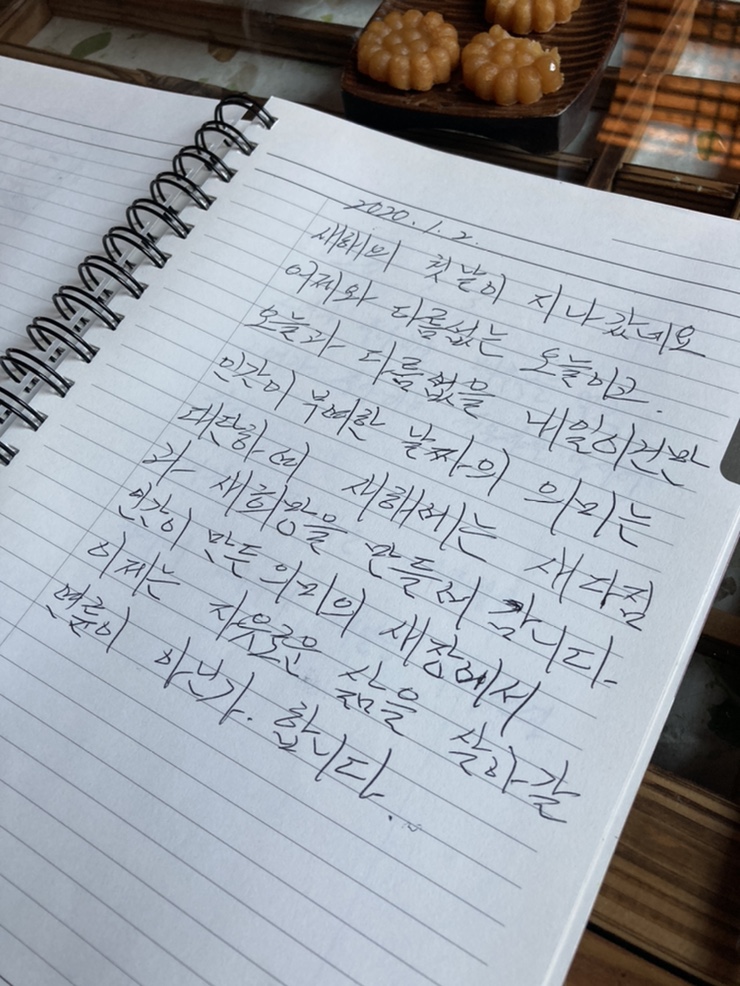 2020. 1. 2.
새해의 첫날이 지나갔네요
어제와 다름없는 오늘이고.
오늘과 다름없을 내일이건만
인간이 부여한 날짜의 의미는
대단하여 새해에는 새다짐
과 새희망을 만들어 갑니다.
인간이 만든 의미의 새장에서
이제는 자유로운 삶을 살아갈
연륜이 아닌가. 합니다.